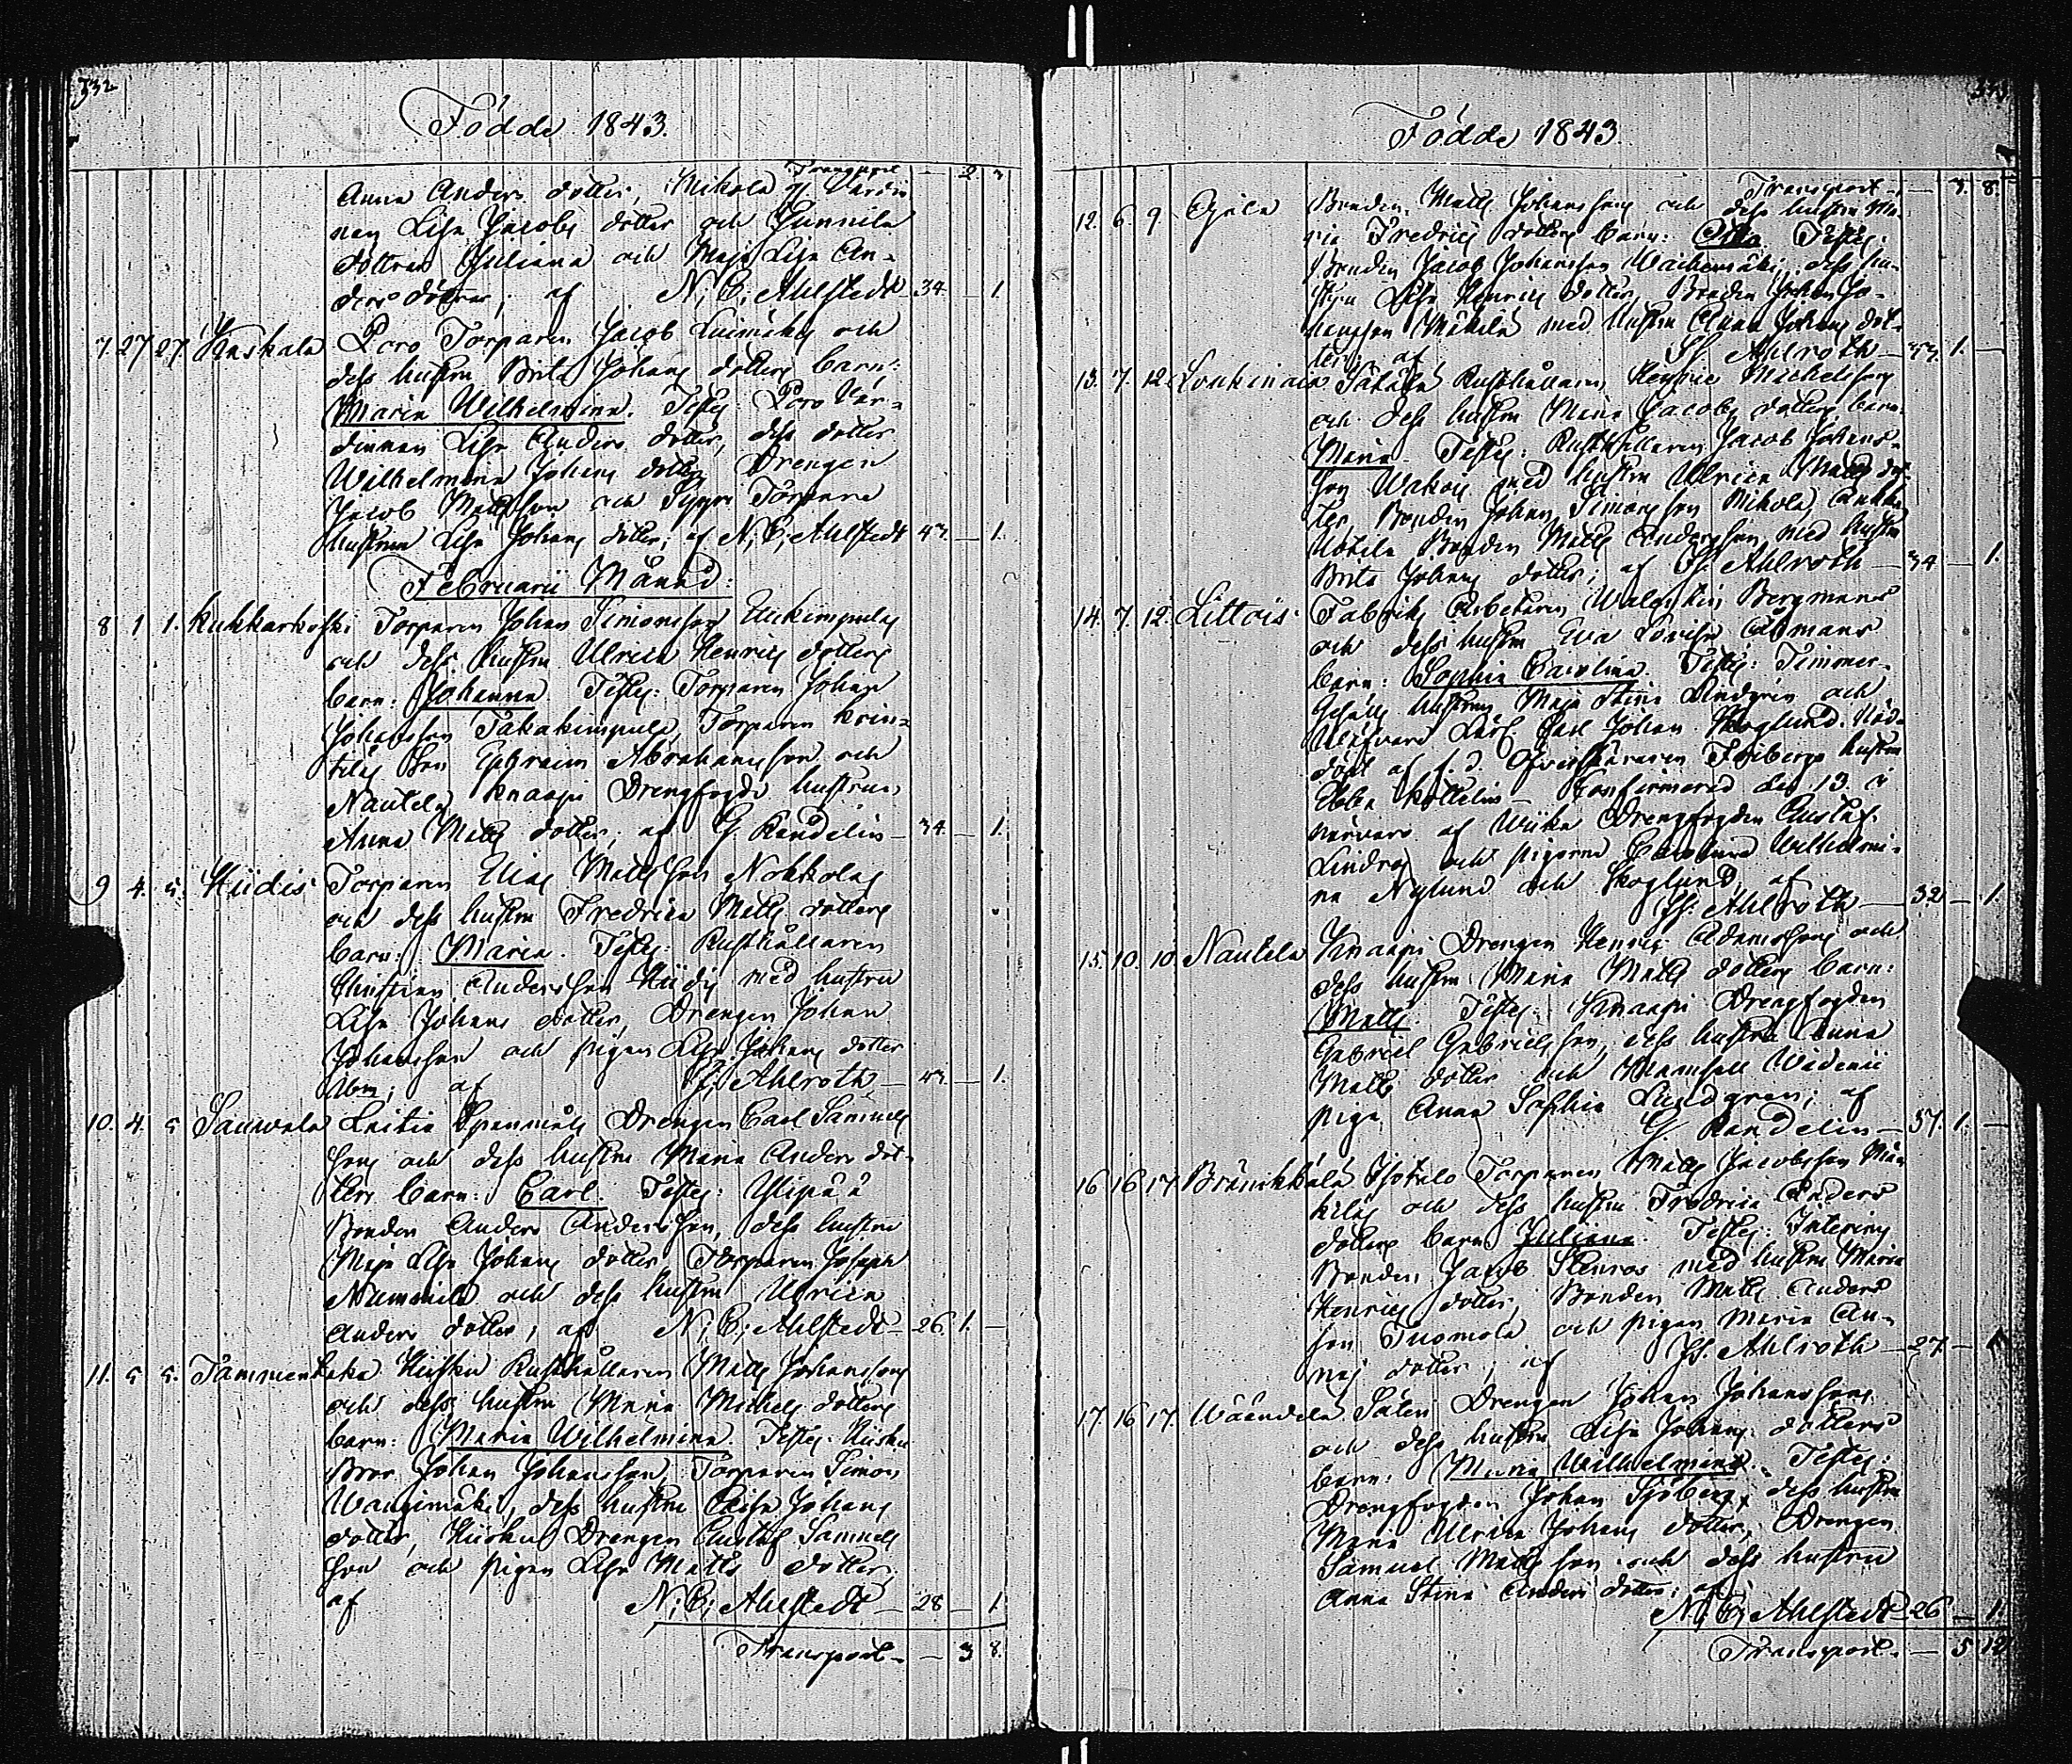 332
Födde 1843.
Transport — 2. 7
Anna Anders dotter, Mikola Värdin
nan Lisa Jacobs dotter och Gunnila
döttrar Juliana och Maja Lisa An-
ders döttrar; af N. E. Ahlstedt — 34. — 1.
7. 27 27. Kaskala Poro Torparen Jacob Luimäkis och
dess hustru Brita Johans dotters barn:
Maria Wilhelmina. Testes: Poro Vär-
dinnan Lisa Anders dotter, dess dotter
Wilhelmina Johans dotter Drengen
Jacob Matts son och Torpare
hustrun Lisa Johans dotter; af N. E. Ahlstedt 43. — 1.
Februarii Månad:
8 1 1. Kukkarkoski Torparen Johan Simonsson
och dess hustru Ulrica Henrics dotters
barn: Johanna. Testes: Torparen Johan
Johansson Takakimpula, Torparen
Son Ephraim Abrahamsson och
Nautela Knaapi Drengfogde hustrun
Anna Matts dotter; af G. Randelin — 34. — 1.
9 4. 5. Hiidis Torparen Elias Matts son Nokkolas
och dess hustru Fredrica Matts dotters
barn: Maria. Testes: Rusthållaren
Christian Anderssen Hiidis med hustru
Lisa Johans dotter, Drengen Johan
Johansson och pigan Lisa Johans dotter
ibm; af Js. Ahlroth — 43. — 1.
10. 4. 5 Sauwala Laitia Drengen Carl Samuels
sons och dess hustru Maria Anders dot-
ters barn: Carl. Testes: Ylipää
Bonden Anders Andersson, dess hustru
Maja Lisa Johans dotter, Torparen Joseph
Nummila och dess hustru Ulrica
Anders dotter; af N. E. Ahlstedt — 26. 1. —
11. 5 5. Tammenkaka Hiisku Rusthållaren Matts Johanssons
och dess hustru Maria Michels dotters
barn: Maria Wilhelmina. Testes: Hiisku
Bror Johan Johansson, Torparen Simon
Wangimäki, dess hustru Caisa Johans
dotter, Hiisku Drengen Gustaf Samuels
son och pigan Lisa Matts dotter,
af N. E. Ahlstedt — 28 — 1.
Transport. — 3 8.
333
Födde 1843.
Transport. — 3. 8.
12. 6. 9. Bonden Matts Johanssons och dess hustru Ma-
ria Fredrics dotters barn: Testes:
Bonden Jacob Johansson dess hu-
stru Lisa Henrics dotter, Bonden Johan Jo-
hansson Mäkilä med hustru Anna Johans dot-
ter; af Js. Ahlroth — 33. 1. —
13. 7. 12. Loukinais Sätälä Rusthållaren Henric Michelssons
och dess hustru Maria Jacobs dotters barn:
Maria. Testes: Rusthållaren Jacob Johans-
son med hustru Ulrica Matts dot-
ter, Bonden Johan Simonsson Nikola,
Bonden Matts Andersson med hustru
Brita Johans dotter; af Js. Ahlroth — 34 — 1.
14. 7. 12. Littois. Fabriks Arbetaren Bergmans
och dess hustru Eva Lovisa
barn: Sophia Carolina. Testes: Timmer-
Gesälls hustrun Maja Stina Lindgren och
Carl Johan Skoglund. Nöd-
döpt af f. d. hustru
Ebba Confirmerad den 13. i
närvaro af Drengfogden Gustaf
Lindros och pigorna Carolina Wilhelmi-
na Nylund och Skoglund, af
Js. Ahlroth — 32 — 1.
15. 10. 10. Nautela Knaapi Drengen Henric Adamssons och
dess hustru Maria Matts dotters barn:
Matts. Testes: Knaapi Drengfogden
Gabriel Gabrielsson, dess hustru Anna
Matts dotter och Mamsell
piga Anna Sophia Lundgren; af
G. Randelin — 37. 1. —
16 16 17. Isotalo Torparen Matts Jacobsson
och dess hustru Fredrica Anders
dotters barn: Juliana. Testes:
Bonden Jacob Stenros med hustru Maria
Henrics dotter, Bonden Matts Anders
son Tuomola och pigan Maria
dotter; af Js. Ahlroth — 27 — 1
17. 16 17. Wääntelä Säteri Drengen Johan Johanssons
och dess hustru Lisa Johans dotters
barn: Maria Wilhelmina. Testes:
Drengfogden Johan Sjöberg, dess hustru
Maria Ulrica Johans dotter, Drengen
Samuel Matts son och dess hustru
Anna Stina Anders dotter; af
N. E. Ahlstedt — 26 — 1.
Transport. — 5 12